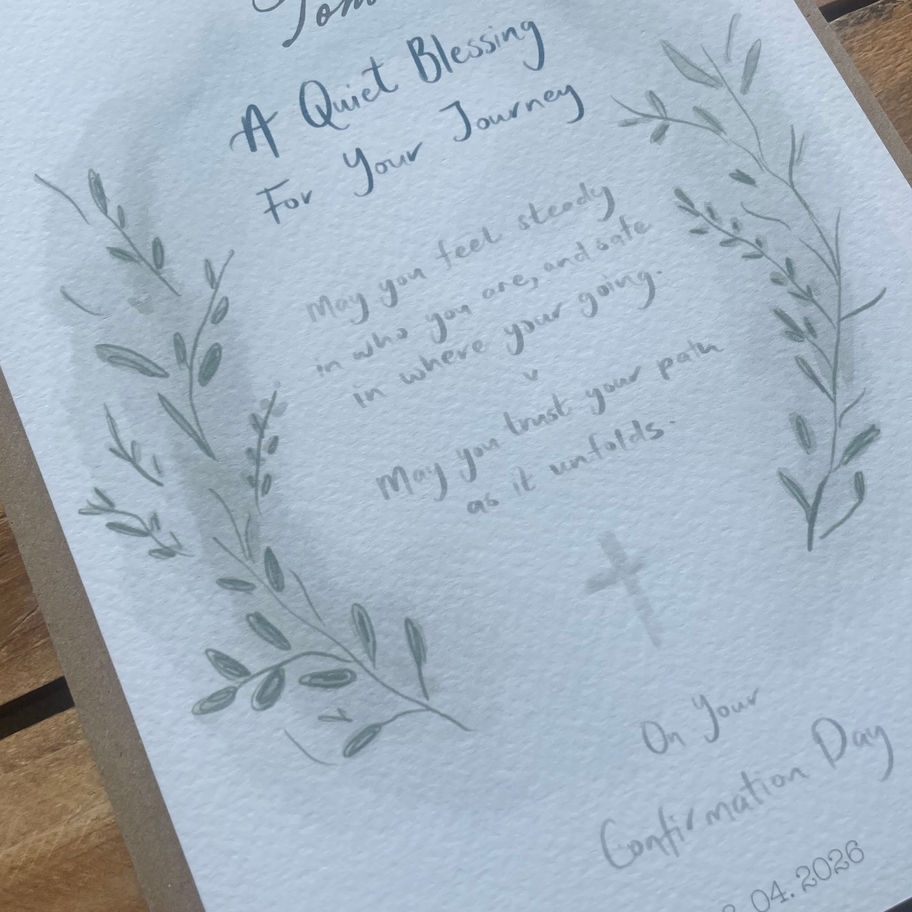 A Quiet Blessing
For Your Journey
May you feel steady
in who you are, and safe
in where your going.
May you trust your path
as it unfolds.
On Your
Confirmation Day
.04.2026